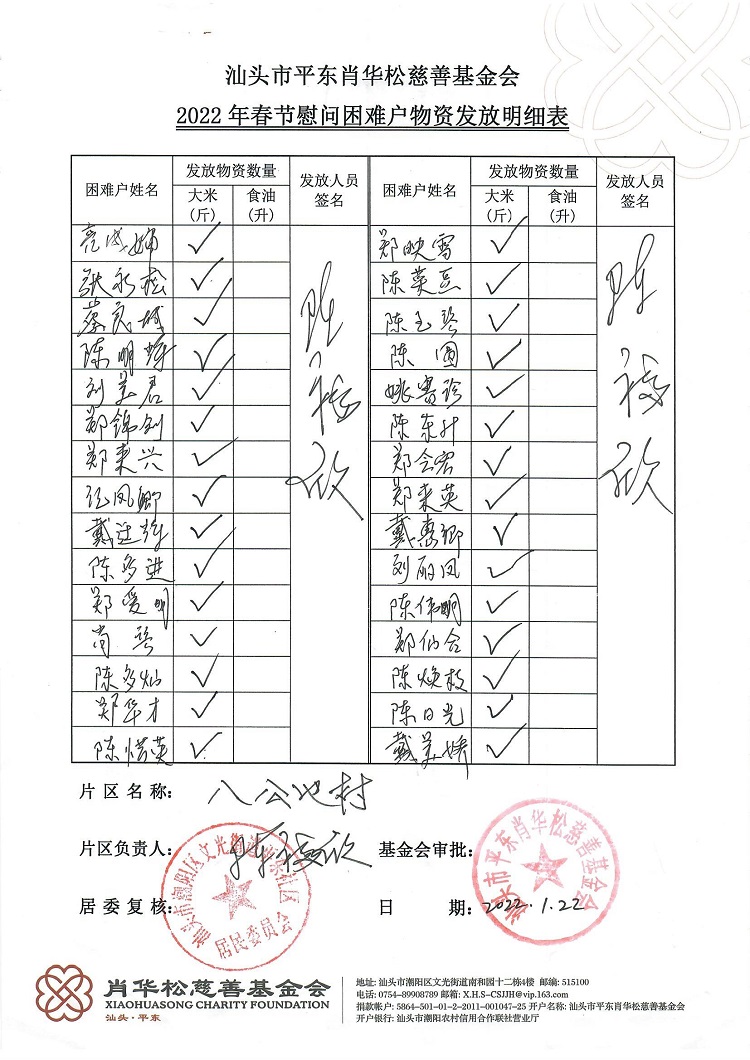 汕头市平东肖华松慈善基金会
2022年春节慰问困难户物资发放明细表
困难户姓名 发放物资数量 发放人员签名 困难户姓名 发放物资数量 发放人员签名
大米(斤) 食油(升) 大米(斤) 食油(升)
✓ 郑映雪 ✓
张永松 ✓ 陈英豆 ✓
蔡良城 ✓ 陈玉琴 ✓
陈明辉 ✓ 陈 ✓
刘美君 ✓ 姚香珍 ✓
郑锦钊 ✓ 陈东升 ✓
郑来兴 ✓ 郑会宏 ✓
凤卿 ✓ 郑来英 ✓
戴廷辉 ✓ 戴惠卿 ✓
陈多进 ✓ 刘丽凤 ✓
郑爱明 ✓ 陈伟明 ✓
肖琴 ✓ 郑伯合 ✓
陈多灿 ✓ 陈焕枝 ✓
郑华才 ✓ 陈日光 ✓
陈惜英 ✓ 戴美娇 ✓
陈 欣
陈 欣
片区名称: 八公池村
片区负责人: 陈 欣 基金会审批:
居委复核: 日 期: 2022.1.22
汕头市潮阳区文光街道 社区
居民委员会
汕头市平东肖华松慈善基金会
肖华松慈善基金会
XIAOHUASONG CHARITY FOUNDATION
汕头·平东
地址: 汕头市潮阳区文光街道南和园十二栋4楼 邮编: 515100
电话: 0754-89908789 邮箱: X.H.S-CSJJH@vip.163.com
捐款帐户: 5864-501-01-2-2011-001047-25 开户名称: 汕头市平东肖华松慈善基金会
开户银行: 汕头市潮阳农村信用合作联社营业厅